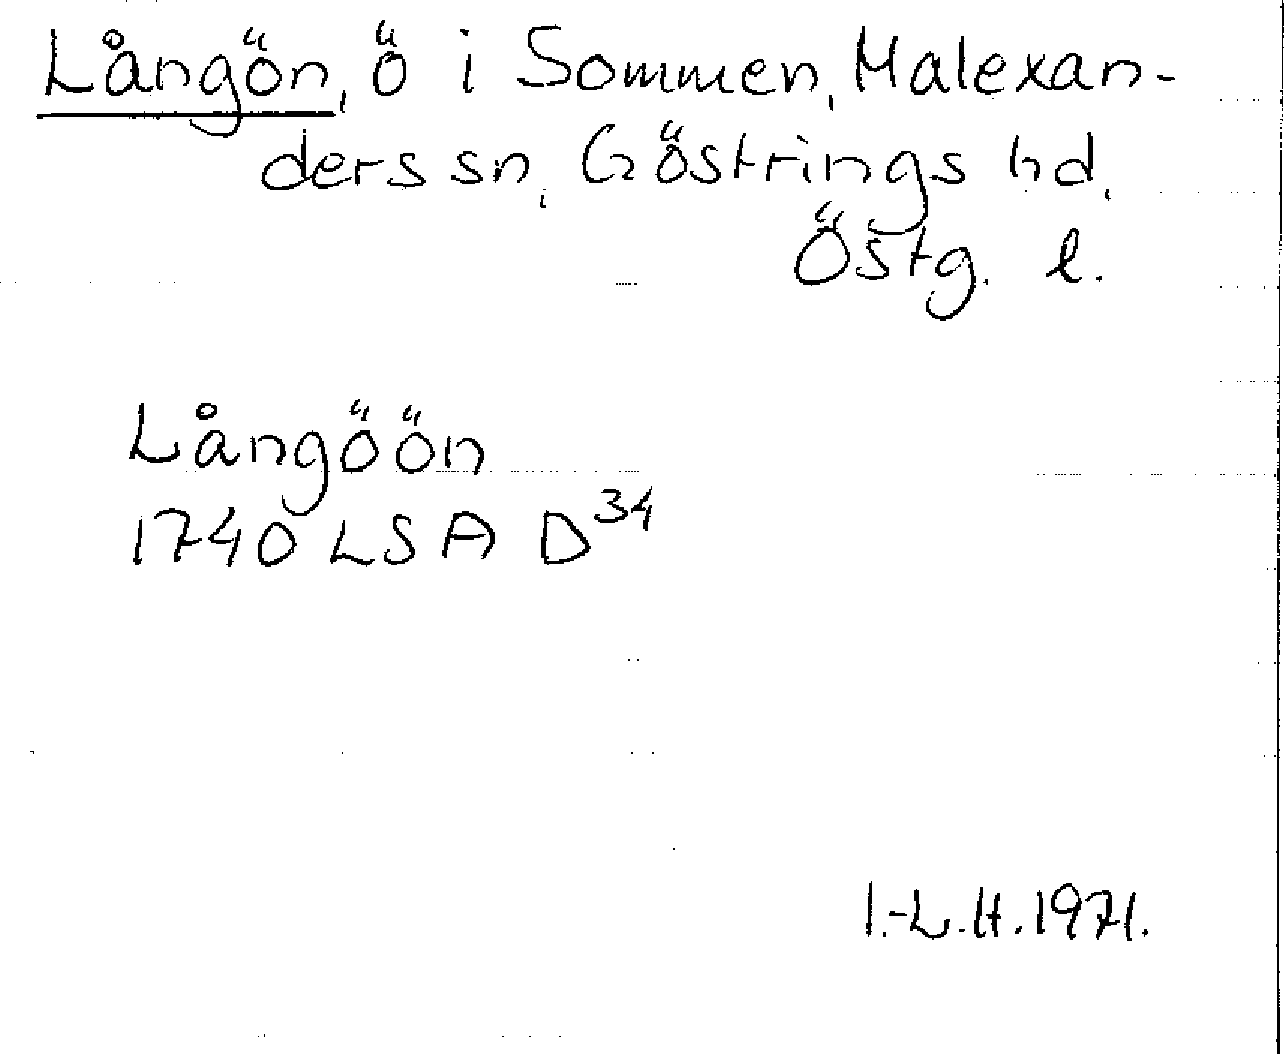 Långön, ö i Sommen, Malexan-
ders sn, Göstrings hd,
Östg. l.
Långöön
1740 LSA D³⁴
I.-L.H. 1971.